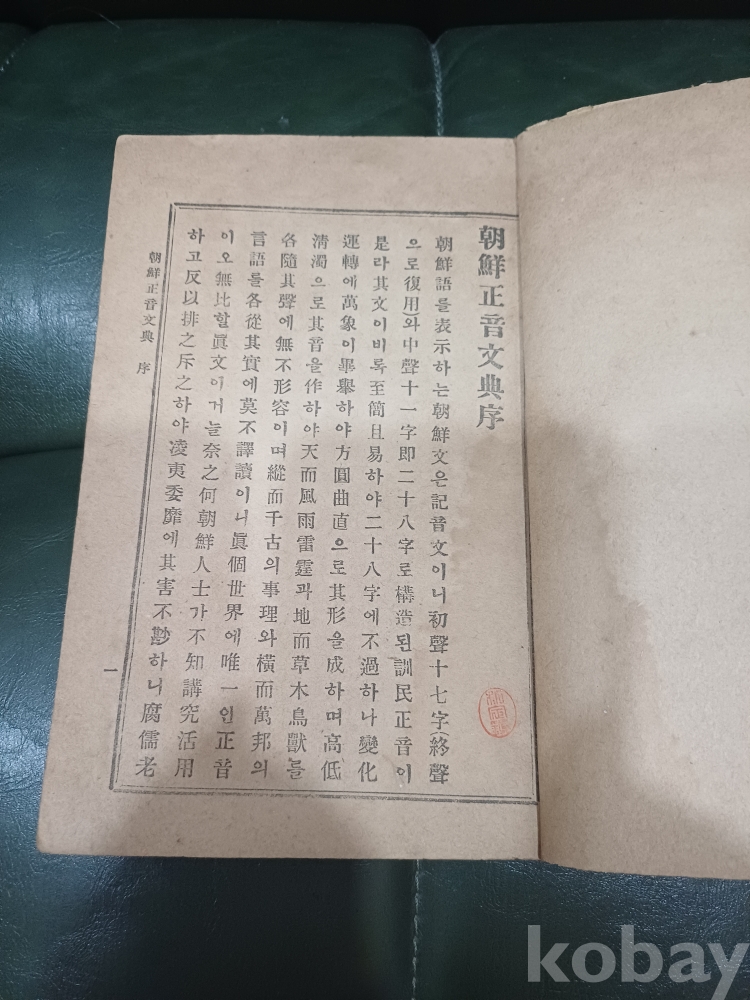 朝鮮正音文典序
朝鮮語를表示하는朝鮮文은記音文이니初聲十七字(終聲
으로復用)와中聲十一字即二十八字로構造된訓民正音이
是라其文이비록至簡且易하야二十八字에不過하나變化
運轉에萬象이畢擧하야方圓曲直으로其形을成하며高低
清濁으로其音을作하야天而風雨雷霆과地而草木鳥獸를
各隨其聲에無不形容이며縱而千古의事理와橫而萬邦의
言語를各從其實에莫不譯讀이니眞個世界에唯一인正音
이오無比할眞文이거늘奈之何朝鮮人士가不知講究活用
하고反以排之斥之하야凌夷委靡에其害不尠하니腐儒老
朝鮮正音文典 序
一
kobay